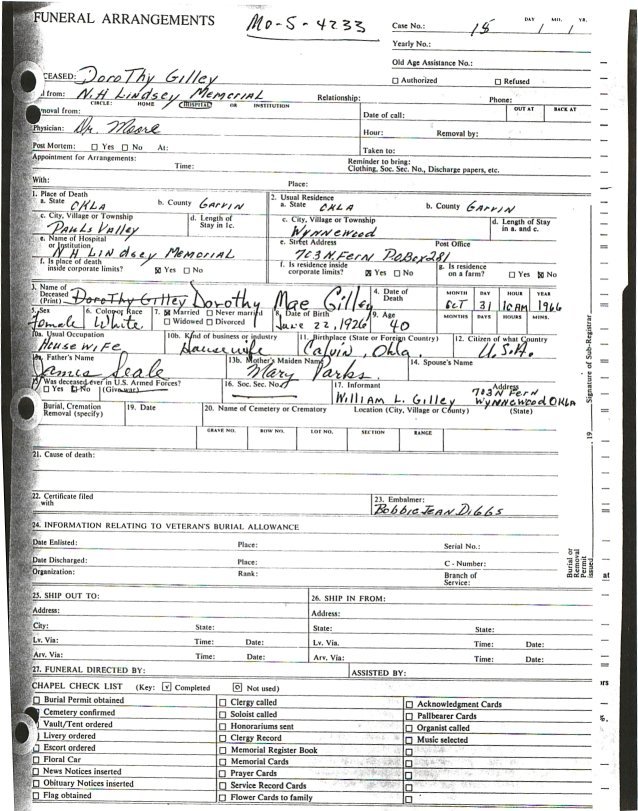 FUNERAL ARRANGEMENTS
MO-S-4233
Case No.: 18 / /
DAY MO. YR.
Yearly No.:
Old Age Assistance No.:
CEASED: Dorothy Gilley
☐ Authorized ☐ Refused
from: N.H. Lindsey Memorial
Relationship: Phone:
CIRCLE: HOME HOSPITAL OR INSTITUTION
OUT AT BACK AT
moval from:
Date of call:
Physician: Dr. Moore
Hour: Removal by:
Post Mortem: ☐ Yes ☐ No At:
Taken to:
Appointment for Arrangements:
Time:
Reminder to bring:
Clothing, Soc. Sec. No., Discharge papers, etc.
With: Place:
1. Place of Death
a. State OKLA b. County Garvin
2. Usual Residence
a. State OKLA b. County Garvin
c. City, Village or Township Pauls Valley
d. Length of Stay in 1c.
c. City, Village or Township Wynnewood
d. Length of Stay in a. and c.
e. Name of Hospital or Institution N H Lindsey Memorial
e. Street Address 703 N. Fern Post Office P.O Box 281
f. Is place of death inside corporate limits? ☒ Yes ☐ No
f. Is residence inside corporate limits? ☒ Yes ☐ No
g. Is residence on a farm? ☐ Yes ☒ No
3. Name of Deceased (Print) Dorothy Gilley Dorothy Mae Gilley
4. Date of Death
MONTH DAY HOUR YEAR
Oct 31 10AM 1966
5. Sex Female
6. Color or Race White
7. ☒ Married ☐ Never married
☐ Widowed ☐ Divorced
8. Date of Birth June 22, 1926
9. Age 40
MONTHS DAYS HOURS MINS.
10a. Usual Occupation Housewife
10b. Kind of business or industry Housewife
11. Birthplace (State or Foreign Country) Calvin, Okla.
12. Citizen of what Country U.S.A.
13a. Father's Name James Seale
13b. Mother's Maiden Name Mary Parks
14. Spouse's Name
15. Was deceased ever in U.S. Armed Forces?
☐ Yes ☐ No (Give war)
16. Soc. Sec. No.
17. Informant William L. Gilley
Address 703 N Fern
Wynnewood Okla
Location (City, Village or County) (State)
Burial, Cremation
Removal (specify)
19. Date
20. Name of Cemetery or Crematory
GRAVE NO. ROW NO. LOT NO. SECTION RANGE
21. Cause of death:
22. Certificate filed with
23. Embalmer: Bobbie Jean Diggs
24. INFORMATION RELATING TO VETERAN'S BURIAL ALLOWANCE
Date Enlisted: Place: Serial No.:
Date Discharged: Place: C - Number:
Organization: Rank: Branch of Service:
Signature of Sub-Registrar
19
Burial or Removal Permit issued
25. SHIP OUT TO:
26. SHIP IN FROM:
Address: Address:
City: State: State: State:
Lv. Via: Time: Date: Lv. Via. Time: Date:
Arv. Via: Time: Date: Arv. Via: Time: Date:
27. FUNERAL DIRECTED BY: ASSISTED BY:
CHAPEL CHECK LIST (Key: ☑ Completed ☐ Not used)
☐ Burial Permit obtained ☐ Clergy called ☐ Acknowledgment Cards
Cemetery confirmed ☐ Soloist called ☐ Pallbearer Cards
Vault/Tent ordered ☐ Honorariums sent ☐ Organist called
☐ Livery ordered ☐ Clergy Record ☐ Music selected
☐ Escort ordered ☐ Memorial Register Book ☐
☐ Floral Car ☐ Memorial Cards ☐
☐ News Notices inserted ☐ Prayer Cards ☐
☐ Obituary Notices inserted ☐ Service Record Cards ☐
☐ Flag obtained ☐ Flower Cards to family ☐